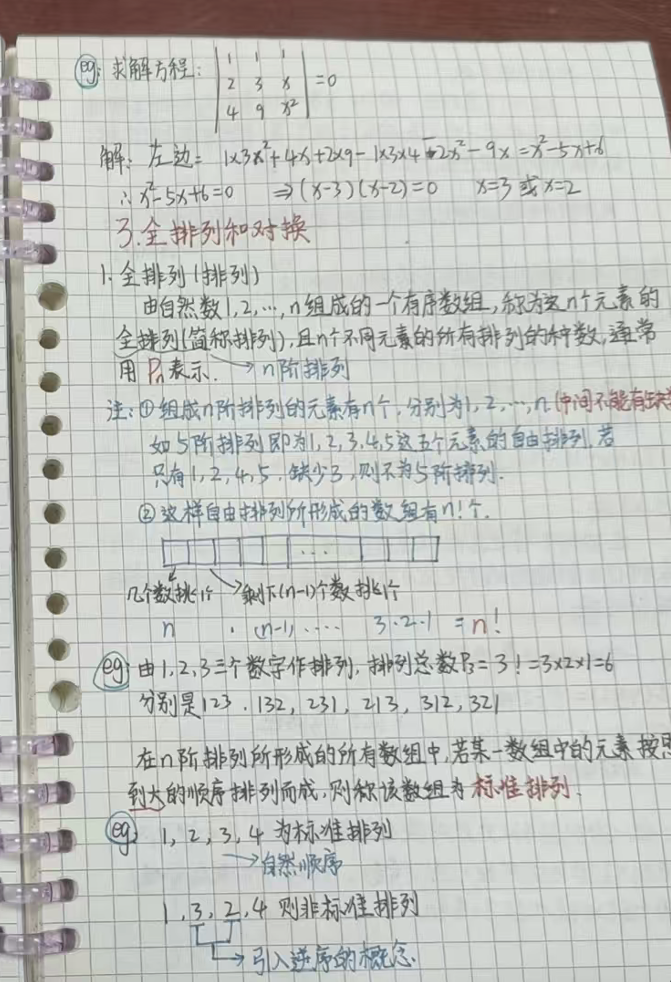 eg: 求解方程: | 1 1 1 |
| 2 3 x | =0
| 4 9 x² |
解: 左边= 1×3x²+4x+2×9-1×3×4-2x²-9x=x²-5x+6
∴x²-5x+6=0 ⇒(x-3)(x-2)=0 x=3 或 x=2
3.全排列和对换
1. 全排列(排列)
由自然数1,2,…,n组成的一个有序数组,称为这n个元素的
全排列(简称排列),且n个不同元素的所有排列的种数,通常
用 Pn 表示. → n阶排列
注: ①组成n阶排列的元素有n个,分别为1,2,…,n(中间不能有缺
如5阶排列即为1,2,3,4,5这五个元素的自由排列.若
只有1,2,4,5.缺少3,则不为5阶排列.
②这样自由排列所形成的数组有n!个.
...
几个数挑1个 剩下(n-1)个数挑1个
n · (n-1) ···· 3·2·1 = n!
eg: 由1,2,3三个数字作排列,排列总数P3=3!=3×2×1=6
分别是123,132,231,213,312,321
在n阶排列所形成的所有数组中,若某一数组中的元素按
到大的顺序排列而成,则称该数组为标准排列.
eg: 1,2,3,4 为标准排列
→自然顺序
1,3,2,4 则非标准排列
→引入逆序的概念.